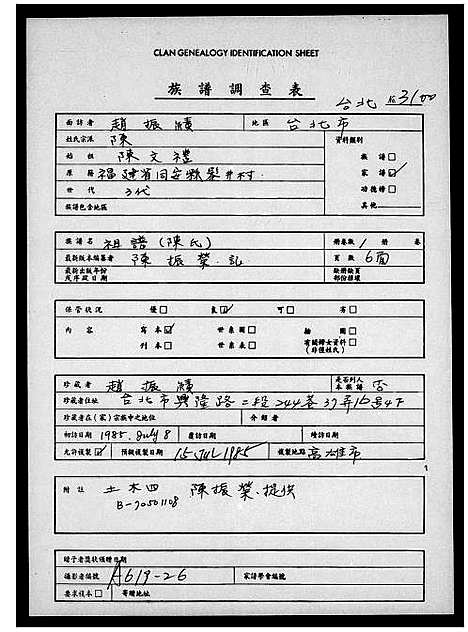 CLAN GENEALOGY IDENTIFICATION SHEET
族譜調查表
台北 № 3100
面訪者 趙振績 地區 台北市
姓氏宗派 陳 資料類別
始祖 陳文禮 族譜□
原籍 福建省同安縣 井村 家譜☑
世代 3代 功德榜□
族譜包含地區 其他
族譜名 祖譜(陳氏) 冊卷數 1 冊 卷
最新版本編纂者 陳振榮.記 頁數 6面
最新出版年份或序跋日期 缺冊缺頁部份據壞
保管狀況 優□ 良☑ 可□ 劣□
內容 寫本☑ 世系圖□ 插圖□
刊本□ 世系表□ 有關婦女資料□(非僅姓氏)
珍藏者 趙振績 是否列入本族譜 否
珍藏者住址 台北市興隆路二段244巷37弄15号4F
珍藏者在(家)宗族中之地位 介紹者
初訪日期 1985.July 8 覆訪日期 續訪日期
允許複製☑ 預擬複製日期 15 Jul 1985 複製地點 高雄市
附註 土木四 陳振榮.提供
B-70501108
贈予者獎狀頒贈日期
攝影者編號 A619-26 家譜學會編號
要求樣本□ 寄贈地址